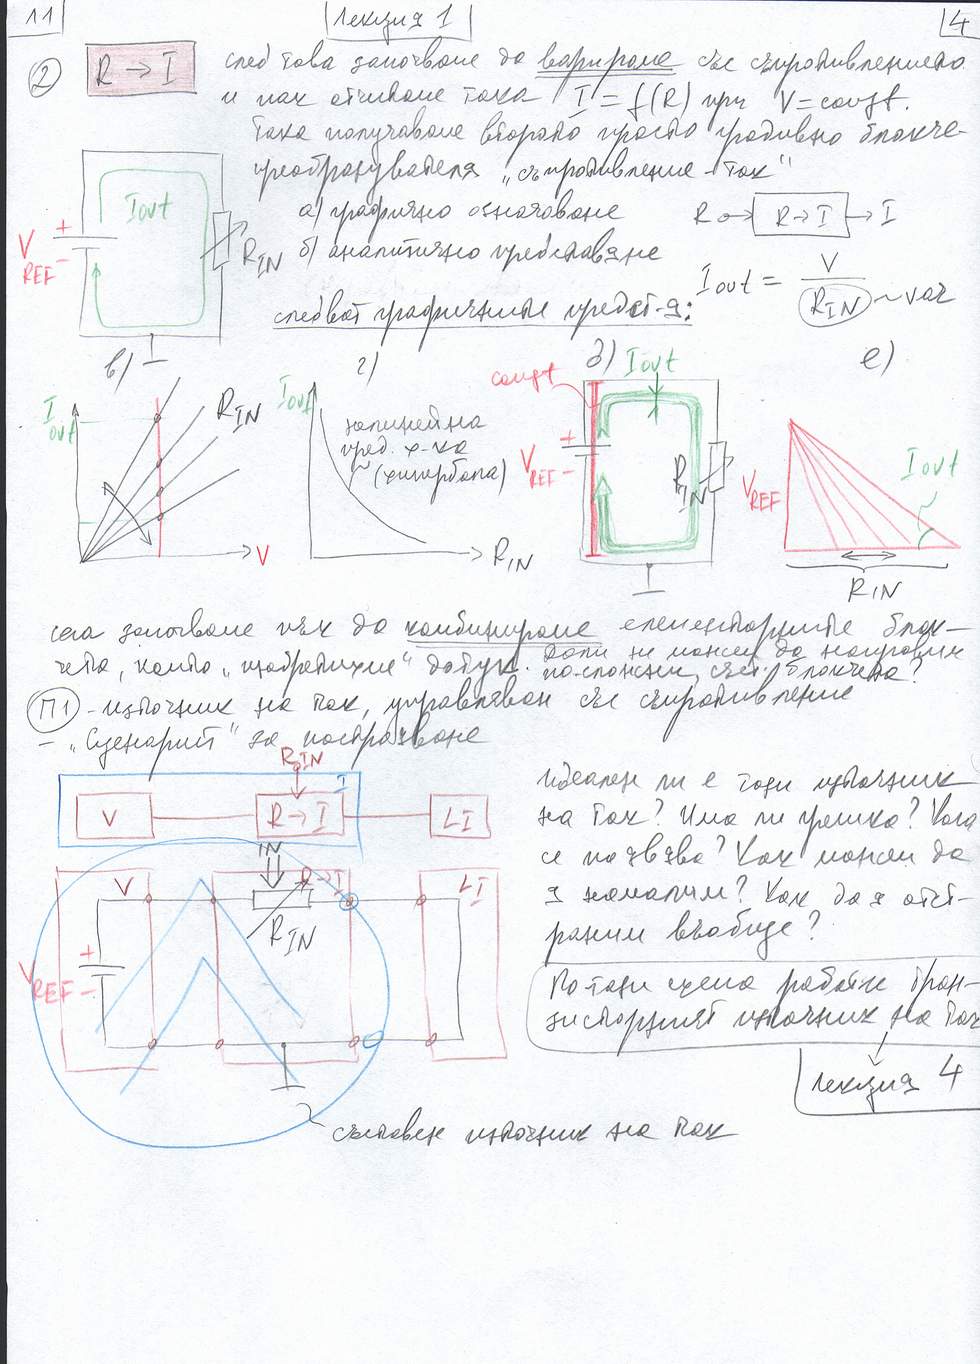 11
Лекция 1
4
2
R → I
след това започваме да варираме със съпротивлението
и пак отчитаме тока I = f(R) при V = const.
Така получаваме второто просто градивно блокче -
преобразувателя „съпротивление - ток"
а) графично означаване
R R → I I
б) аналитично представяне
Iout = V / RIN ~ var
Iout
+
VREF
-
RIN
следват графичните предст-я:
в)
Iout
RIN
V
г)
Iout
нелинейна
пред. х-ка
(хипербола)
RIN
д)
const
Iout
+
VREF
-
RIN
е)
VREF
Iout
RIN
сега започваме пък да комбинираме елементарните блок-
чета, които „изобретихме" дотук. Дали не можем да направим
по-сложни, със. блокчета?
П1 - източник на ток, управляван със съпротивление
- „Сценарий" за построяване
RIN
I
V
R → I
LI
IN
V
R → I
LI
RIN
+
VREF
-
идеален ли е този източник
на ток? Има ли грешка? Кога
се появява? Как можем да
я намалим? Как да я отст-
раним въобще?
По тази схема работи тран-
зисторният източник на ток
лекция 4
съставен източник на ток